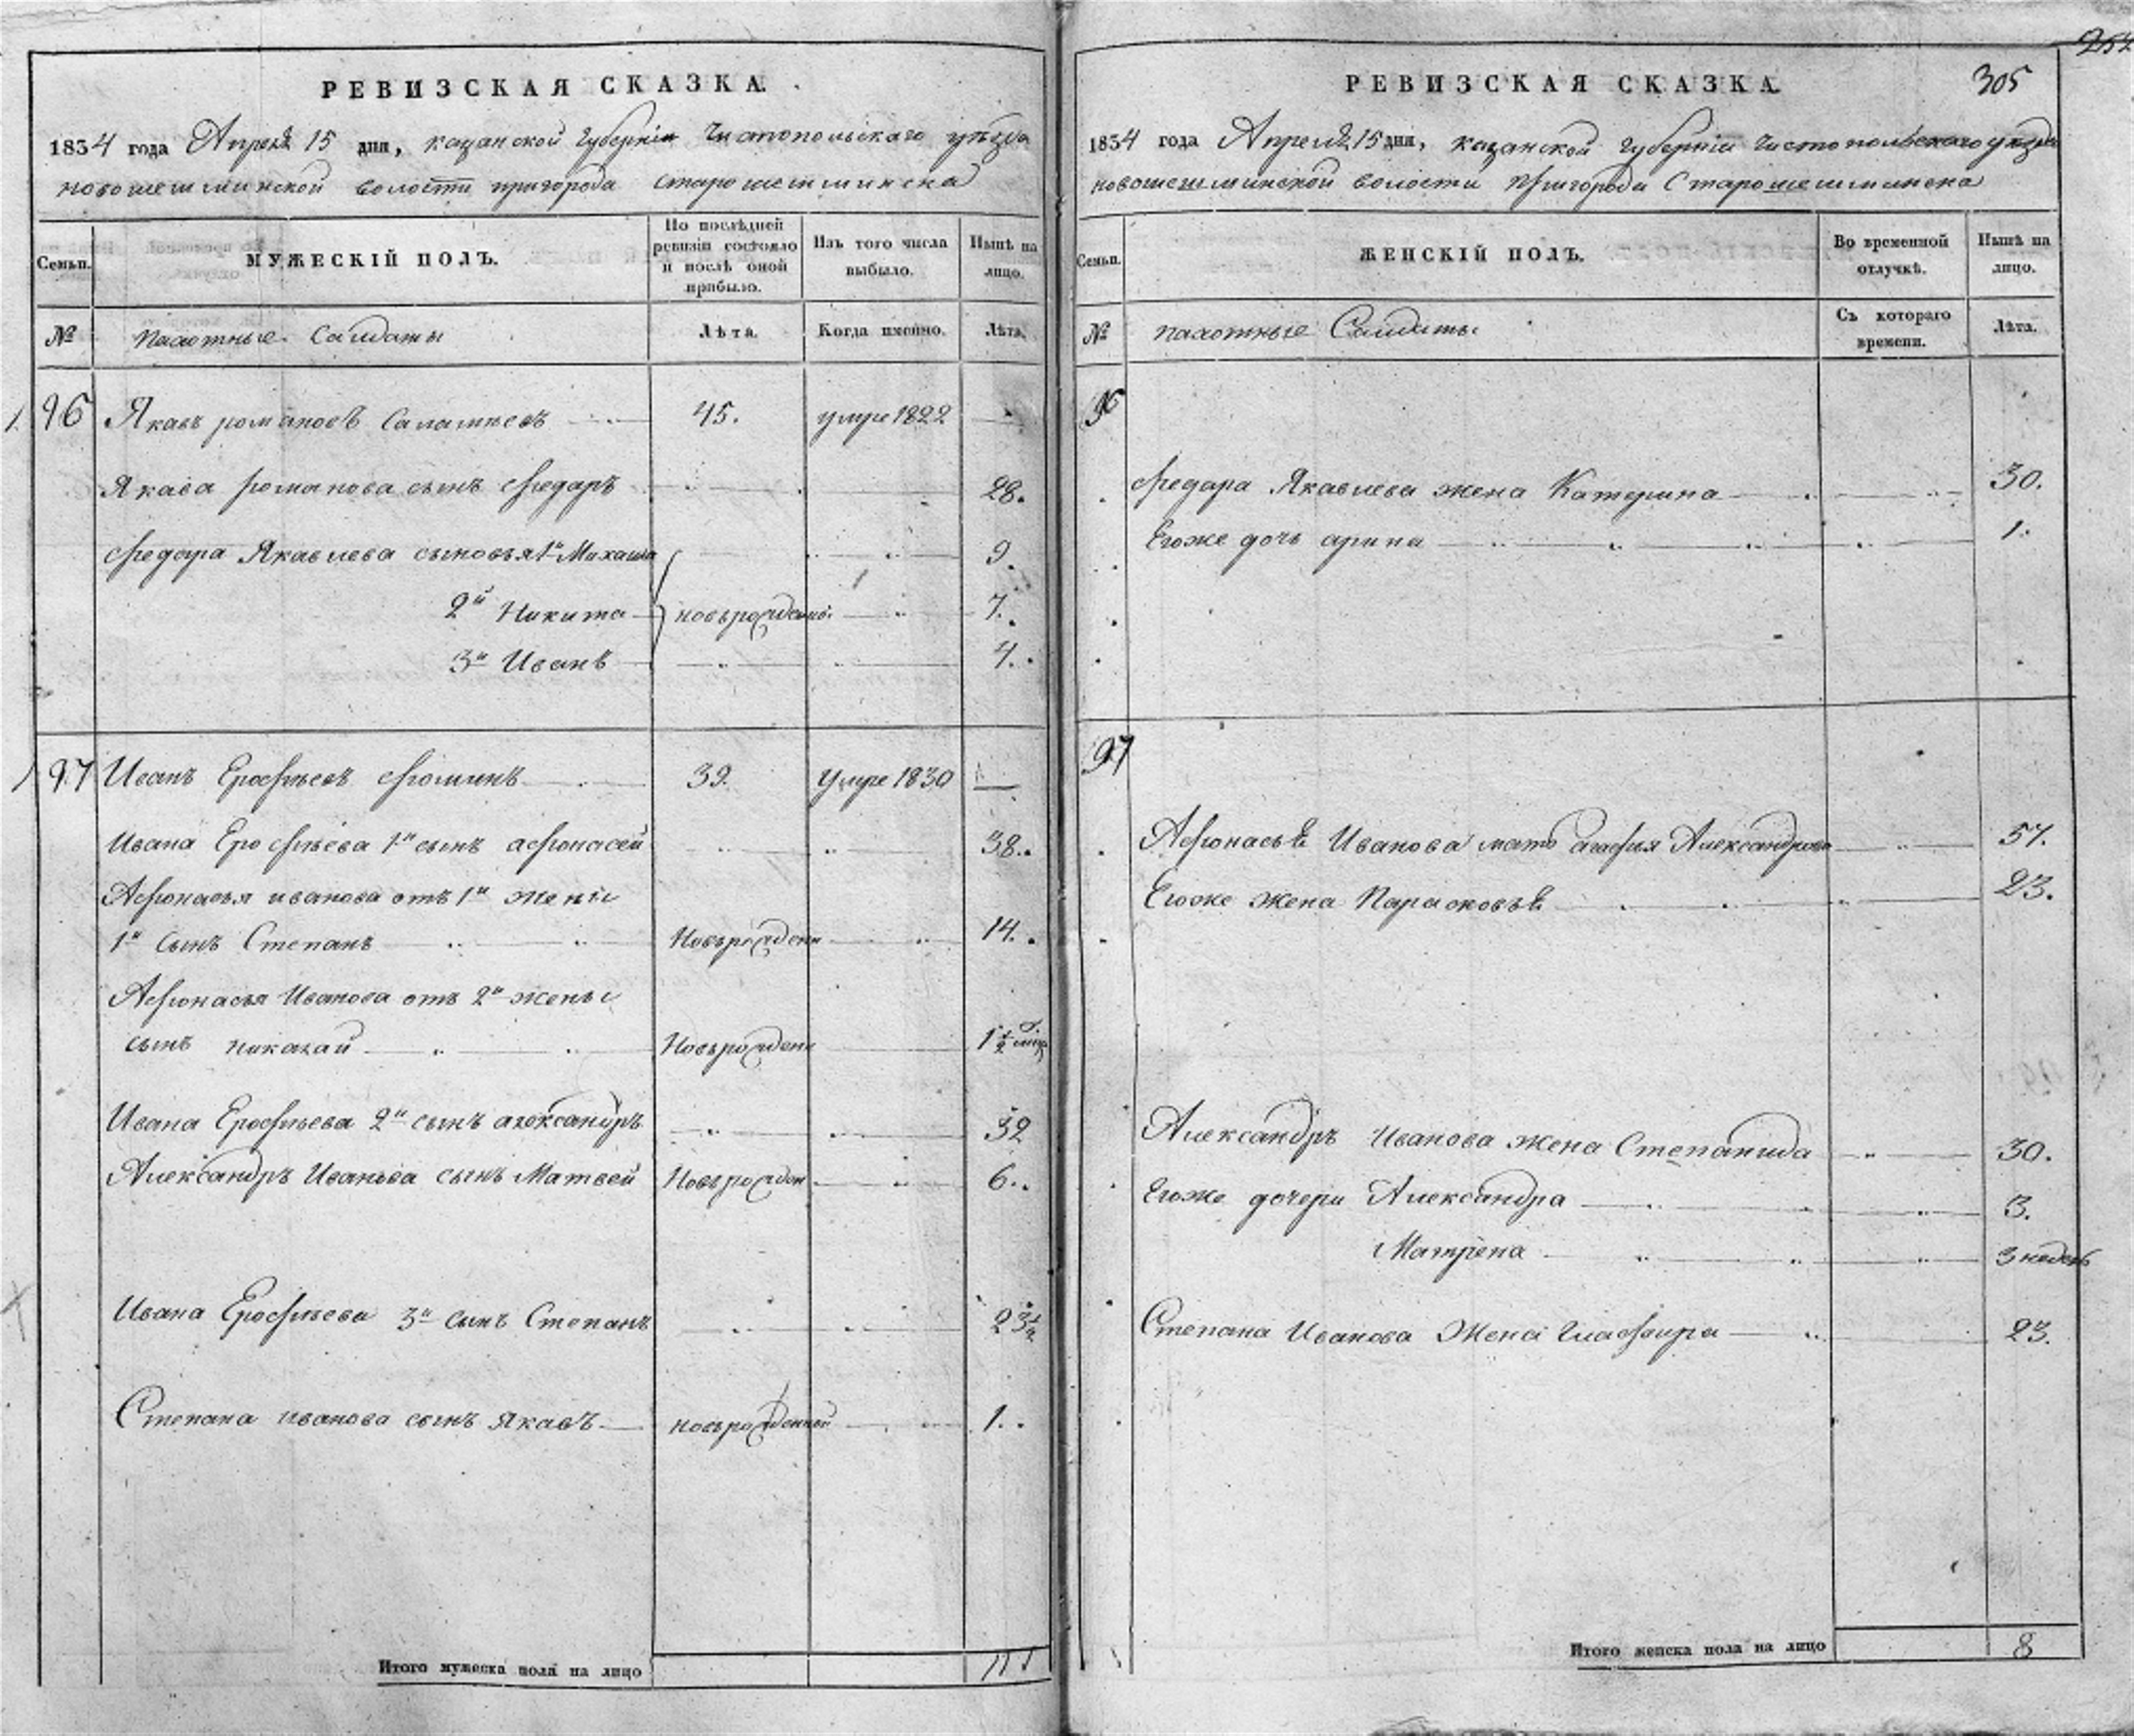 РЕВИЗСКАЯ СКАЗКА.
1834 года Апреля 15 дня, казанской губернии Чистопольского уезда
новошешминской волости пригорода старошешминска
Семьи.
МУЖЕСКІЙ ПОЛЪ.
По послѣдней ревизіи состояло и послѣ оной прибыло.
Изъ того числа выбыло.
Нынѣ на лицо.
№
пахотные Салдаты
Лѣта.
Когда имѣнно.
Лѣта.
96 Якавъ романовъ Саламневъ 45. умре 1822
Якава романова сынъ Федаръ 28.
Федора Якавлева сыновья 1й Михаила 9.
2й Никита новърожденны. 7.
3й Иванъ 4.
97 Иванъ Ерофѣевъ Фоминъ 39. умре 1830
Ивана Ерофѣева 1й сынъ афонасей 38.
Афонасья иванова отъ 1й жены
1й сынъ Степанъ Новърожден 14.
Афонасья Иванова отъ 2й жены
сынъ николай Новърожден 1 1/2
Ивана Ерофѣева 2й сынъ александръ 32
Александръ Иванова сынъ Матвей Новърожден 6.
Ивана Ерофѣева 3й сынъ Степанъ 23 1/2
Степана иванова сынъ Якавъ новърожденной 1.
Итого мужеска пола на лицо 11
252
305
РЕВИЗСКАЯ СКАЗКА.
1834 года Апреля 15 дня, казанской губернии Чистопольскаго уезда
новошешминской волости пригорода Старошешминска
Семьи.
ЖЕНСКІЙ ПОЛЪ.
Во временной отлучкѣ.
Нынѣ на лицо.
№
пахотные Салдаты
Съ котораго времени.
Лѣта.
96
Федара Якавлева жена Катерина 30.
Егоже дочь арина 1.
97
Афонасья Иванова мать агафия Александрова 57.
Егоже жена Парасковья 23.
Александръ Иванова жена Степанида 30.
Егоже дочери Александра 3.
Матрена 3 недель
Степана Иванова Жена Глафира 23.
Итого женска пола на лицо 8